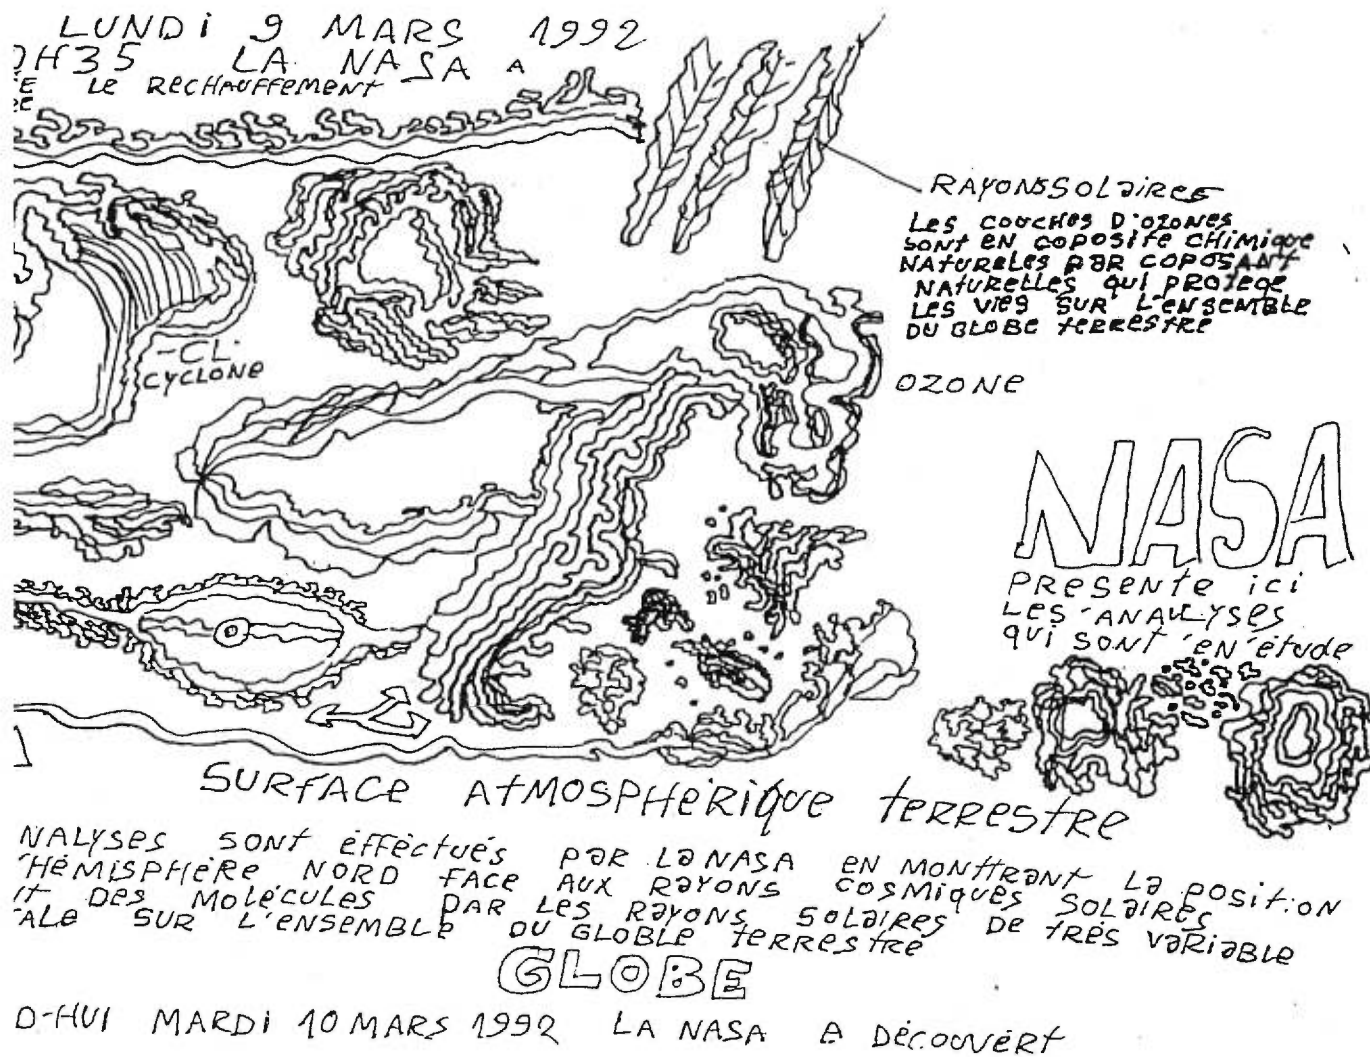 LUNDI 9 MARS 1992
0H35 LA NASA A
E LE RECHAUFFEMENT
RE
RAYONSSOLAIRES
LES COUCHES D'OZONES
SONT EN COPOSITE CHIMIQUE
NATURELES PAR COPOSANT
NATURELLES QUI PROTEGE
LES VIES SUR L'ENSEMBLE
DU GLOBE TERRESTRE
-CL.
CYCLONE
OZONE
NASA
PRESENTE ICI
LES ANALYSES
QUI SONT 'EN'ÉTUDE
SURFACE ATMOSPHÈRIQUE TERRESTRE
NALYSES SONT ÈFFÈCTUÉS PAR LA NASA EN MONTTRANT LA POSITION
'HÉMISPHÈRE NORD FACE AUX RAYONS COSMIQUES SOLAIRES
IT DES MOLÉCULES PAR LES RAYONS SOLAIRES DE TRÈS VARIABLE
ALE SUR L'ENSEMBLE DU GLOBLE TERRESTRE
GLOBE
D-HUI MARDI 10 MARS 1992 LA NASA A DÉCOUVERT